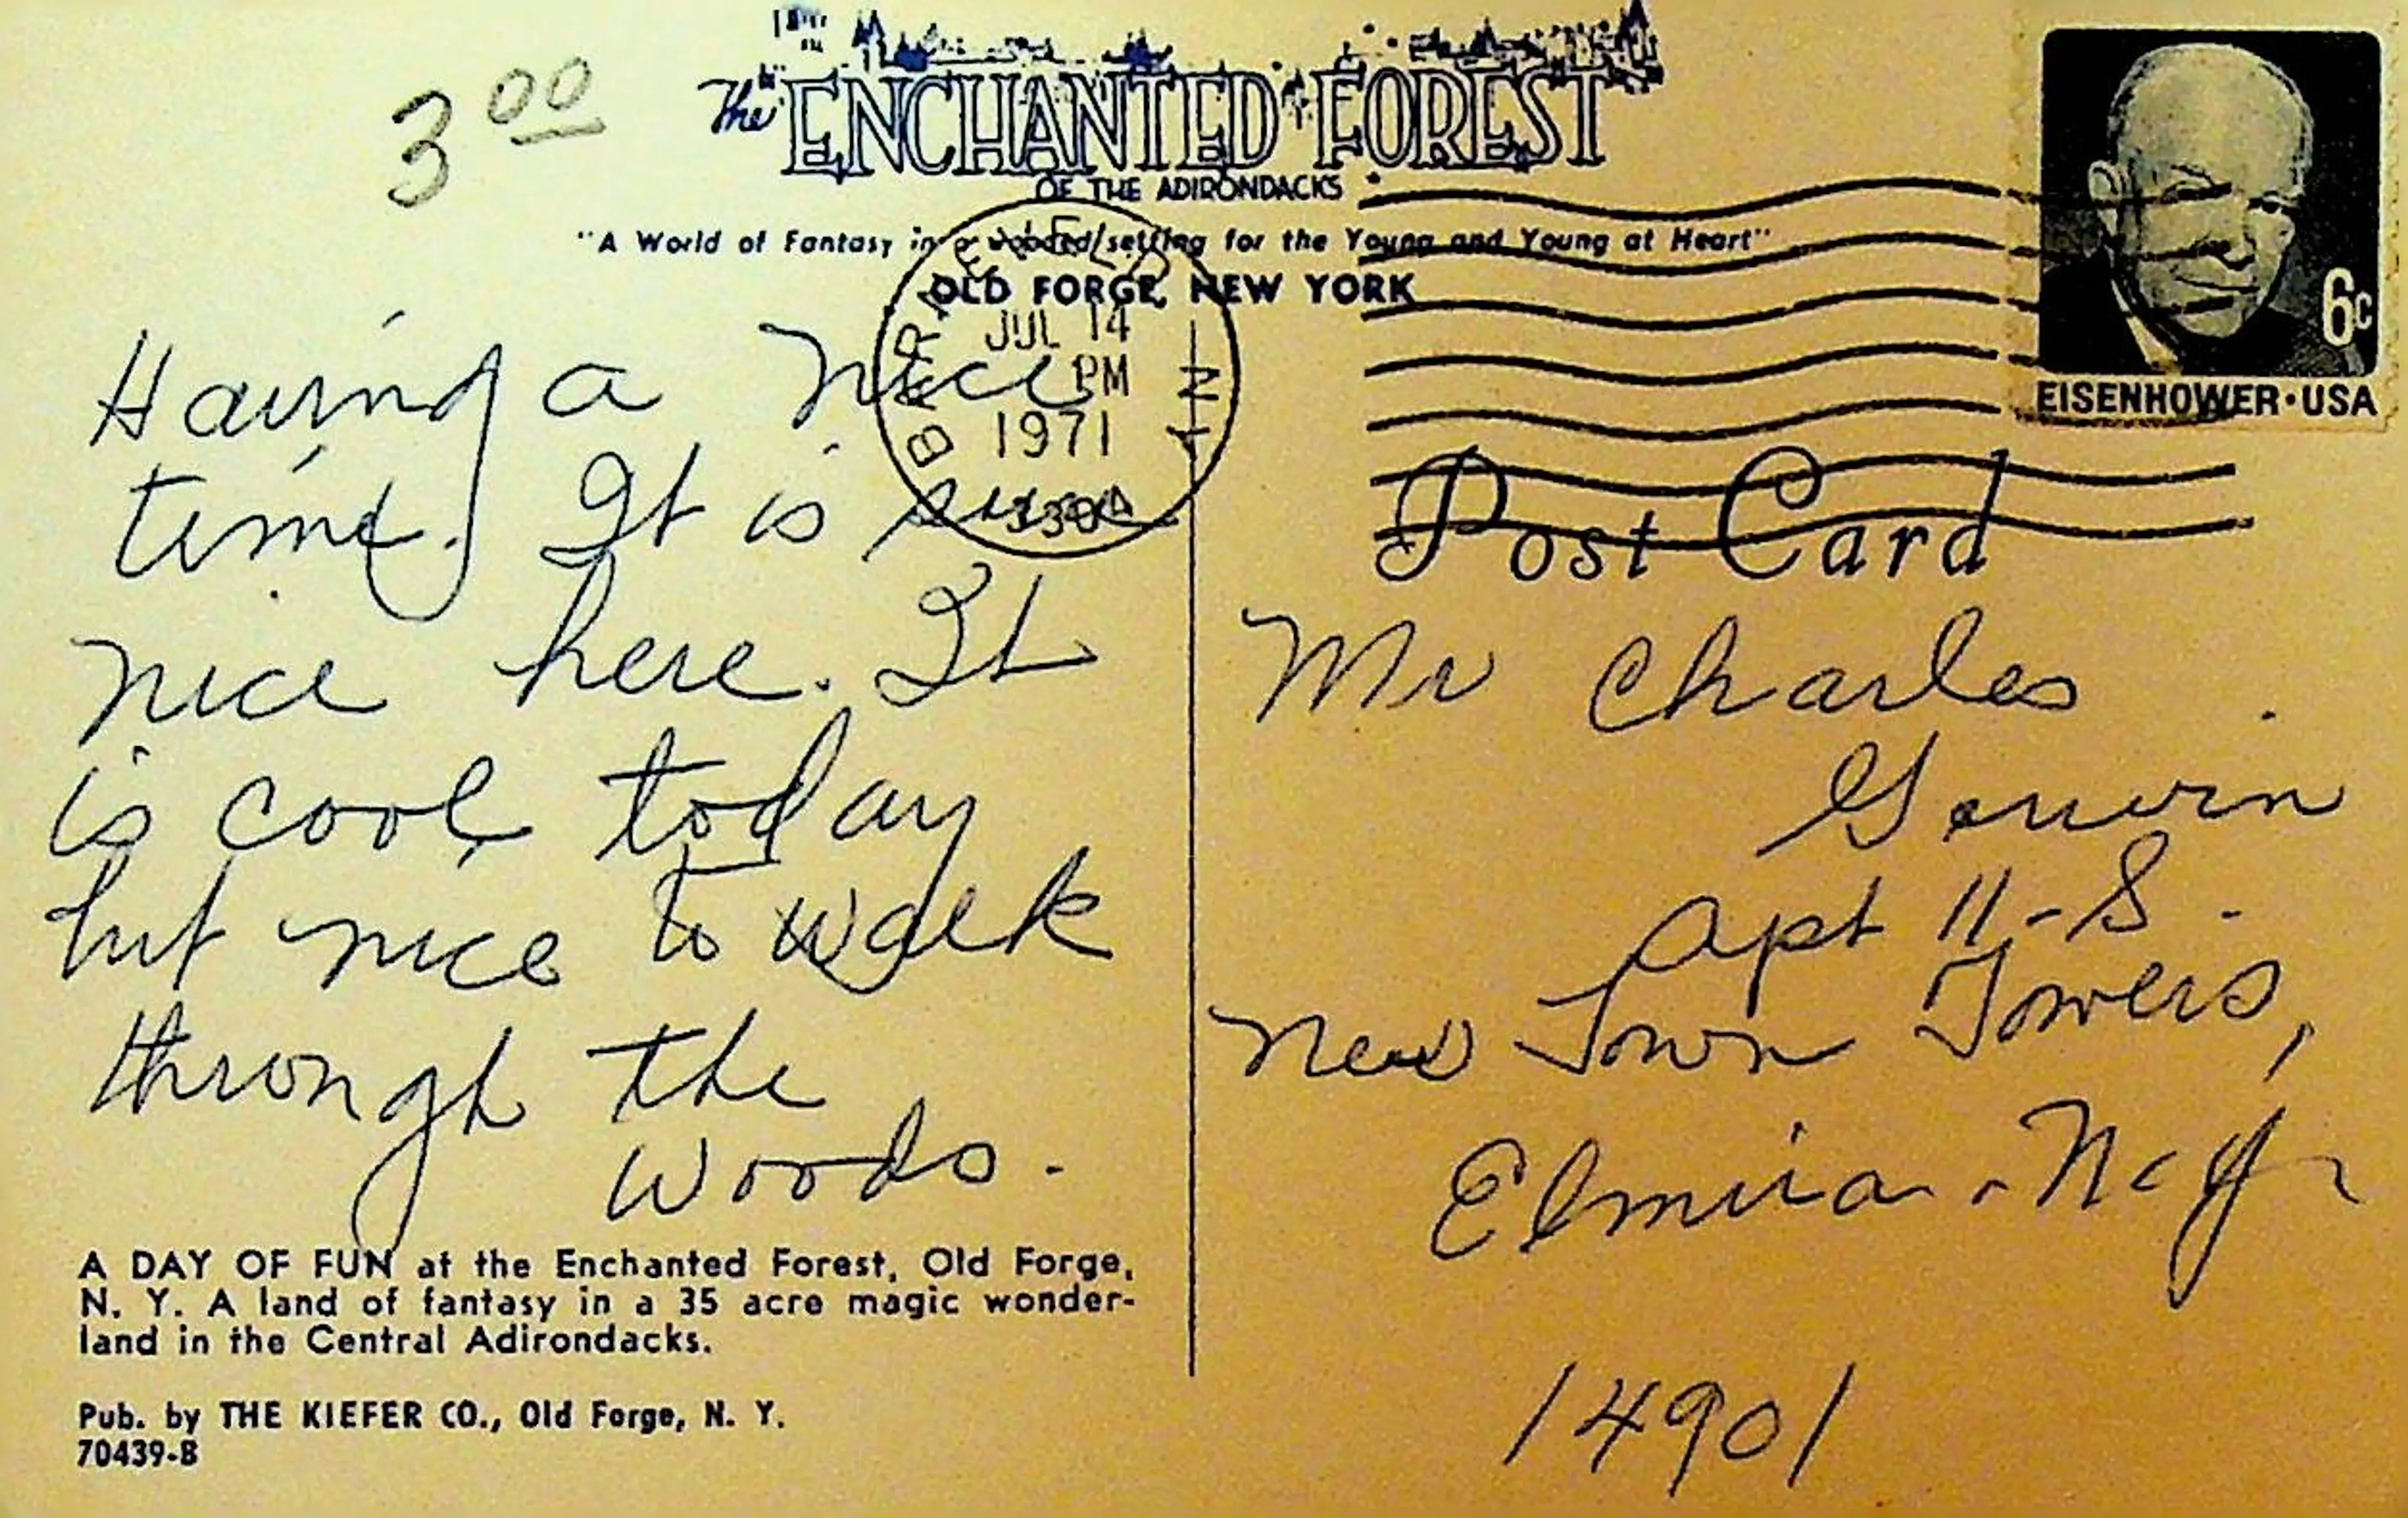 3 00
The ENCHANTED FOREST
OF THE ADIRONDACKS
"A World of Fantasy in a wooded setting for the Young and Young at Heart"
OLD FORGE, NEW YORK
JUL 14
PM
1971
N Y
6c
EISENHOWER·USA
Having a nice
time. It is sure
nice here. It
is cool today
but nice to walk
through the
woods.
A DAY OF FUN at the Enchanted Forest, Old Forge,
N. Y. A land of fantasy in a 35 acre magic wonder-
land in the Central Adirondacks.
Pub. by THE KIEFER CO., Old Forge, N. Y.
70439-B
Post Card
Mr Charles
Apt 11-S.
New Town Towers,
Elmira - N.Y.
14901